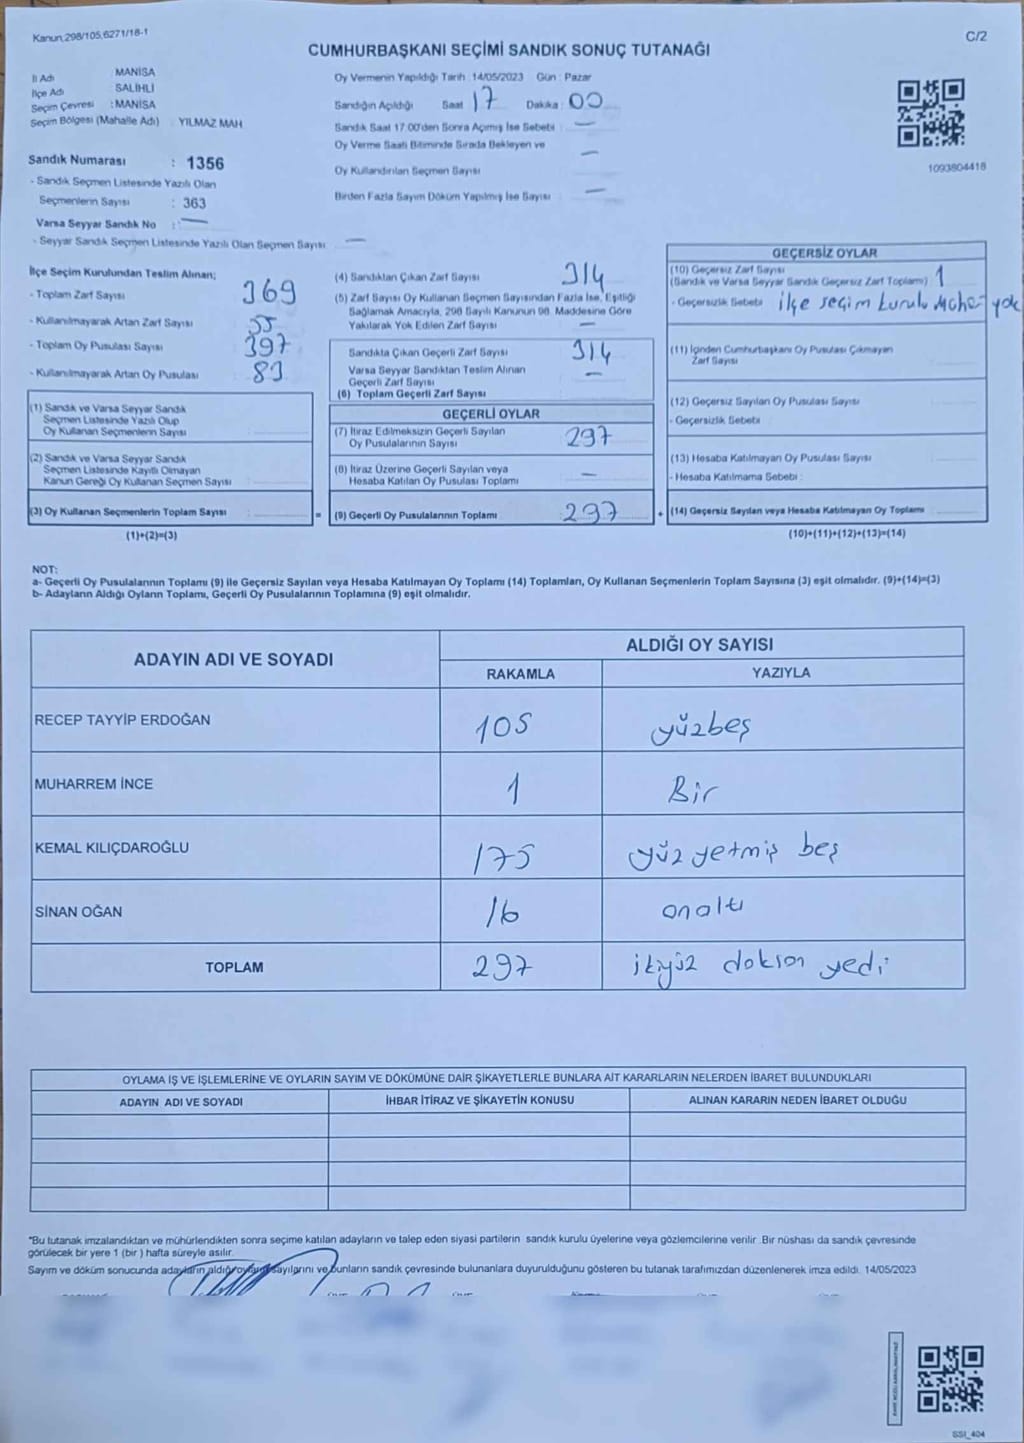 Kanun,298/105,6271/18-1
C/2
CUMHURBAŞKANI SEÇİMİ SANDIK SONUÇ TUTANAĞI
İl Adı MANİSA
İlçe Adı SALİHLİ
Seçim Çevresi : MANİSA
Seçim Bölgesi (Mahalle Adı) YILMAZ MAH
Sandık Numarası : 1356
- Sandık Seçmen Listesinde Yazılı Olan
Seçmenlerin Sayısı : 363
Varsa Seyyar Sandık No : —
- Seyyar Sandık Seçmen Listesinde Yazılı Olan Seçmen Sayısı —
Oy Vermenin Yapıldığı Tarih : 14/05/2023 Gün : Pazar
Sandığın Açıldığı Saat 17 Dakika : 00
Sandık Saat 17.00'den Sonra Açımış İse Sebebi : —
Oy Verme Saati Bitiminde Sırada Bekleyen ve
Oy Kullandırılan Seçmen Sayısı —
Birden Fazla Sayım Döküm Yapılmış İse Sayısı —
1093804418
İlçe Seçim Kurulundan Teslim Alınan;
- Toplam Zarf Sayısı 369
- Kullanılmayarak Artan Zarf Sayısı 55
- Toplam Oy Pusulası Sayısı 397
- Kullanılmayarak Artan Oy Pusulası 83
(1) Sandık ve Varsa Seyyar Sandık
Seçmen Listesinde Yazılı Olup
Oy Kullanan Seçmenlerin Sayısı
(2) Sandık ve Varsa Seyyar Sandık
Seçmen Listesinde Kayıtlı Olmayan
Kanun Gereği Oy Kullanan Seçmen Sayısı
(3) Oy Kullanan Seçmenlerin Toplam Sayısı =
(1)+(2)=(3)
(4) Sandıktan Çıkan Zarf Sayısı 314
(5) Zarf Sayısı Oy Kullanan Seçmen Sayısından Fazla İse, Eşitliği
Sağlamak Amacıyla, 298 Sayılı Kanunun 98. Maddesine Göre
Yakılarak Yok Edilen Zarf Sayısı —
Sandıkta Çıkan Geçerli Zarf Sayısı 314
Varsa Seyyar Sandıktan Teslim Alınan
Geçerli Zarf Sayısı —
(6) Toplam Geçerli Zarf Sayısı
GEÇERLİ OYLAR
(7) İtiraz Edilmeksizin Geçerli Sayılan
Oy Pusulalarının Sayısı 297
(8) İtiraz Üzerine Geçerli Sayılan veya
Hesaba Katılan Oy Pusulası Toplamı —
(9) Geçerli Oy Pusulalarının Toplamı 297 +
GEÇERSİZ OYLAR
(10) Geçersiz Zarf Sayısı
(Sandık ve Varsa Seyyar Sandık Geçersiz Zarf Toplamı) 1
- Geçersizlik Sebebi ilçe seçim kurulu yok
(11) İçinden Cumhurbaşkanı Oy Pusulası Çıkmayan
Zarf Sayısı
(12) Geçersiz Sayılan Oy Pusulası Sayısı
- Geçersizlik Sebebi
(13) Hesaba Katılmayan Oy Pusulası Sayısı
- Hesaba Katılmama Sebebi :
(14) Geçersiz Sayılan veya Hesaba Katılmayan Oy Toplamı
(10)+(11)+(12)+(13)=(14)
NOT:
a- Geçerli Oy Pusulalarının Toplamı (9) ile Geçersiz Sayılan veya Hesaba Katılmayan Oy Toplamı (14) Toplamları, Oy Kullanan Seçmenlerin Toplam Sayısına (3) eşit olmalıdır. (9)+(14)=(3)
b- Adayların Aldığı Oyların Toplamı, Geçerli Oy Pusulalarının Toplamına (9) eşit olmalıdır.
ADAYIN ADI VE SOYADI
ALDIĞI OY SAYISI
RAKAMLA YAZIYLA
RECEP TAYYİP ERDOĞAN 105 yüzbeş
MUHARREM İNCE 1 Bir
KEMAL KILIÇDAROĞLU 175 yüz yetmiş beş
SİNAN OĞAN 16 onaltı
TOPLAM 297 ikiyüz doksan yedi
OYLAMA İŞ VE İŞLEMLERİNE VE OYLARIN SAYIM VE DÖKÜMÜNE DAİR ŞİKAYETLERLE BUNLARA AİT KARARLARIN NELERDEN İBARET BULUNDUKLARI
ADAYIN ADI VE SOYADI İHBAR İTİRAZ VE ŞİKAYETİN KONUSU ALINAN KARARIN NEDEN İBARET OLDUĞU
*Bu tutanak imzalandıktan ve mühürlendikten sonra seçime katılan adayların ve talep eden siyasi partilerin sandık kurulu üyelerine veya gözlemcilerine verilir .Bir nüshası da sandık çevresinde
görülecek bir yere 1 (bir ) hafta süreyle asılır.
Sayım ve döküm sonucunda adayların aldığı oyların sayılarını ve bunların sandık çevresinde bulunanlara duyurulduğunu gösteren bu tutanak tarafımızdan düzenlenerek imza edildi. 14/05/2023
SSI_404